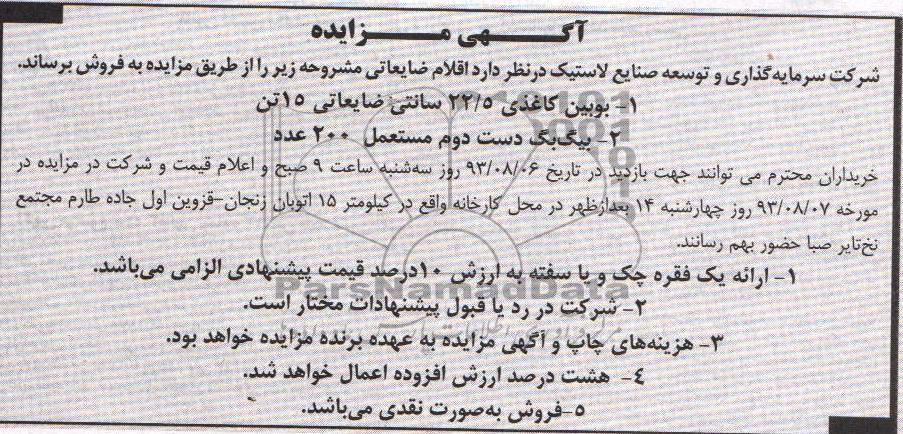 آگهی مزایده
شرکت سرمایه‌گذاری و توسعه صنایع لاستیک درنظر دارد اقلام ضایعاتی مشروحه زیر را از طریق مزایده به فروش برساند.
۱- بوبین کاغذی ۲۲/۵ سانتی ضایعاتی ۱۵تن
۲- بیگ‌بگ دست دوم مستعمل ۲۰۰ عدد
خریداران محترم می توانند جهت بازدید در تاریخ ۹۳/۰۸/۰۶ روز سه‌شنبه ساعت ۹ صبح و اعلام قیمت و شرکت در مزایده در
مورخه ۹۳/۰۸/۰۷ روز چهارشنبه ۱۴ بعدازظهر در محل کارخانه واقع در کیلومتر ۱۵ اتوبان زنجان-قزوین اول جاده طارم مجتمع
نخ‌تایر صبا حضور بهم رسانند.
۱- ارائه یک فقره چک و یا سفته به ارزش ۱۰درصد قیمت پیشنهادی الزامی می‌باشد.
ParsNamadData
۲- شرکت در رد یا قبول پیشنهادات مختار است.
۳- هزینه‌های چاپ و آگهی مزایده به عهده برنده مزایده خواهد بود.
۴- هشت درصد ارزش افزوده اعمال خواهد شد.
۵-فروش به‌صورت نقدی می‌باشد.